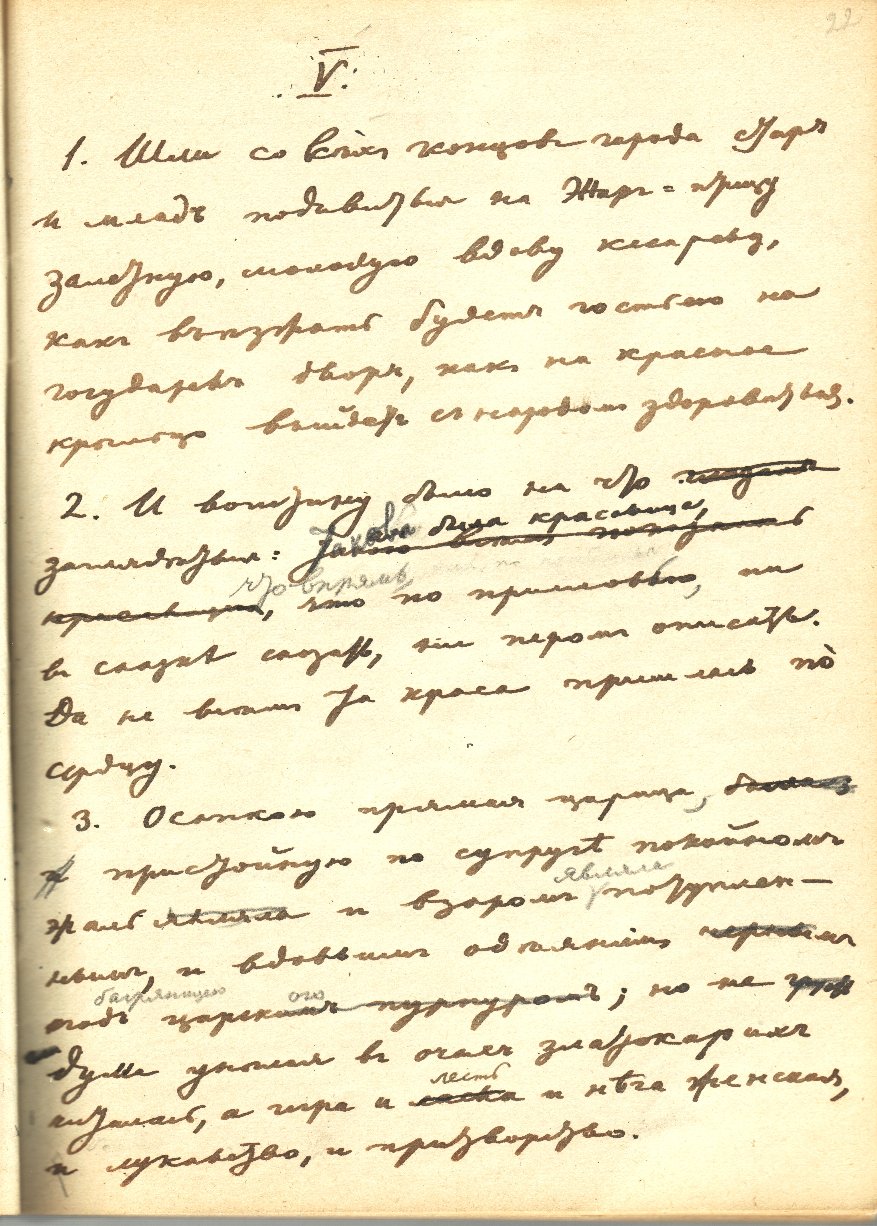 22
V.
1. Шли со всѣхъ концовъ города старъ
и младъ подивиться на Жаръ-птицу
залетную, молодую вдову кесареву,
какъ въѣзжать будетъ гостьею на
государевъ дворъ, какъ на красное
крыльцо выйдетъ съ народомъ здороваться.
2. И воистину было на что
заглядѣться: Такова была красавица,
что впрямь, что по пословью, ни
въ сказкѣ сказать, ни перомъ описать.
Да не всѣмъ та краса пришлась по̀
сердцу.
3. Осанкою прямая царица,
и пристойную по супругѣ покойномъ
жаль являла и взоромъ потуплен-
нымъ, и вдовьимъ одѣяніемъ
подъ царскою багряницею; но не
дума унылая въ очахъ златокарихъ
явилась, а игра и лесть и нѣга женская,
и лукавство, и притворство.